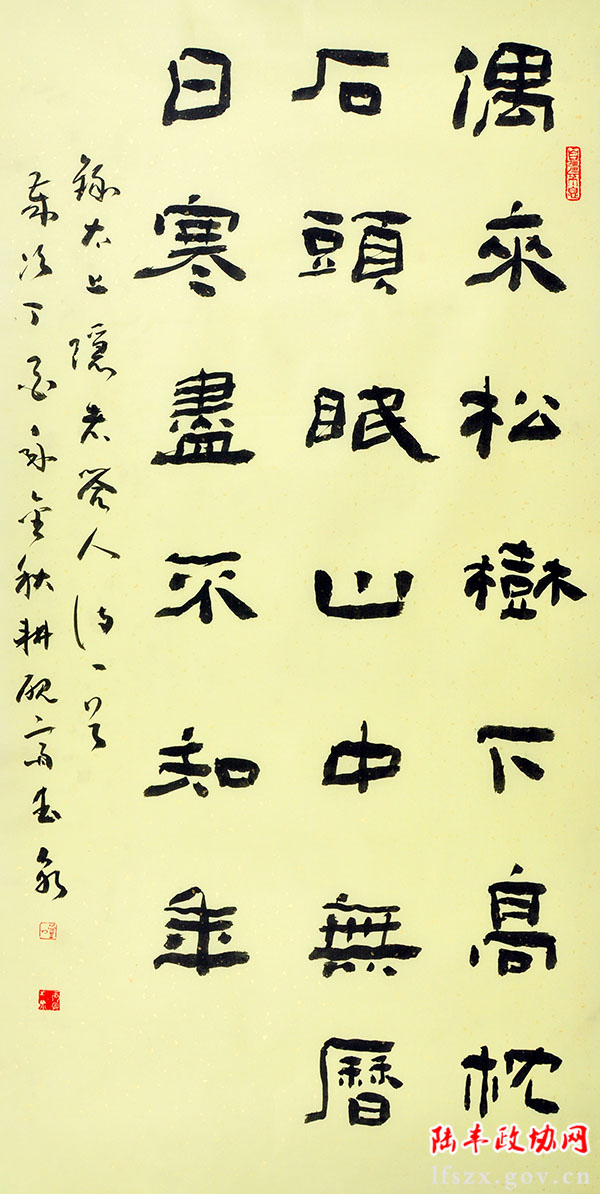 偶來松樹下高枕
石頭眠山中無曆
日寒盡不知年
錄太上隱者答人詩一首
歲次丁亥年金秋耕硯齋
陆丰政协网
lfszx.gov.cn